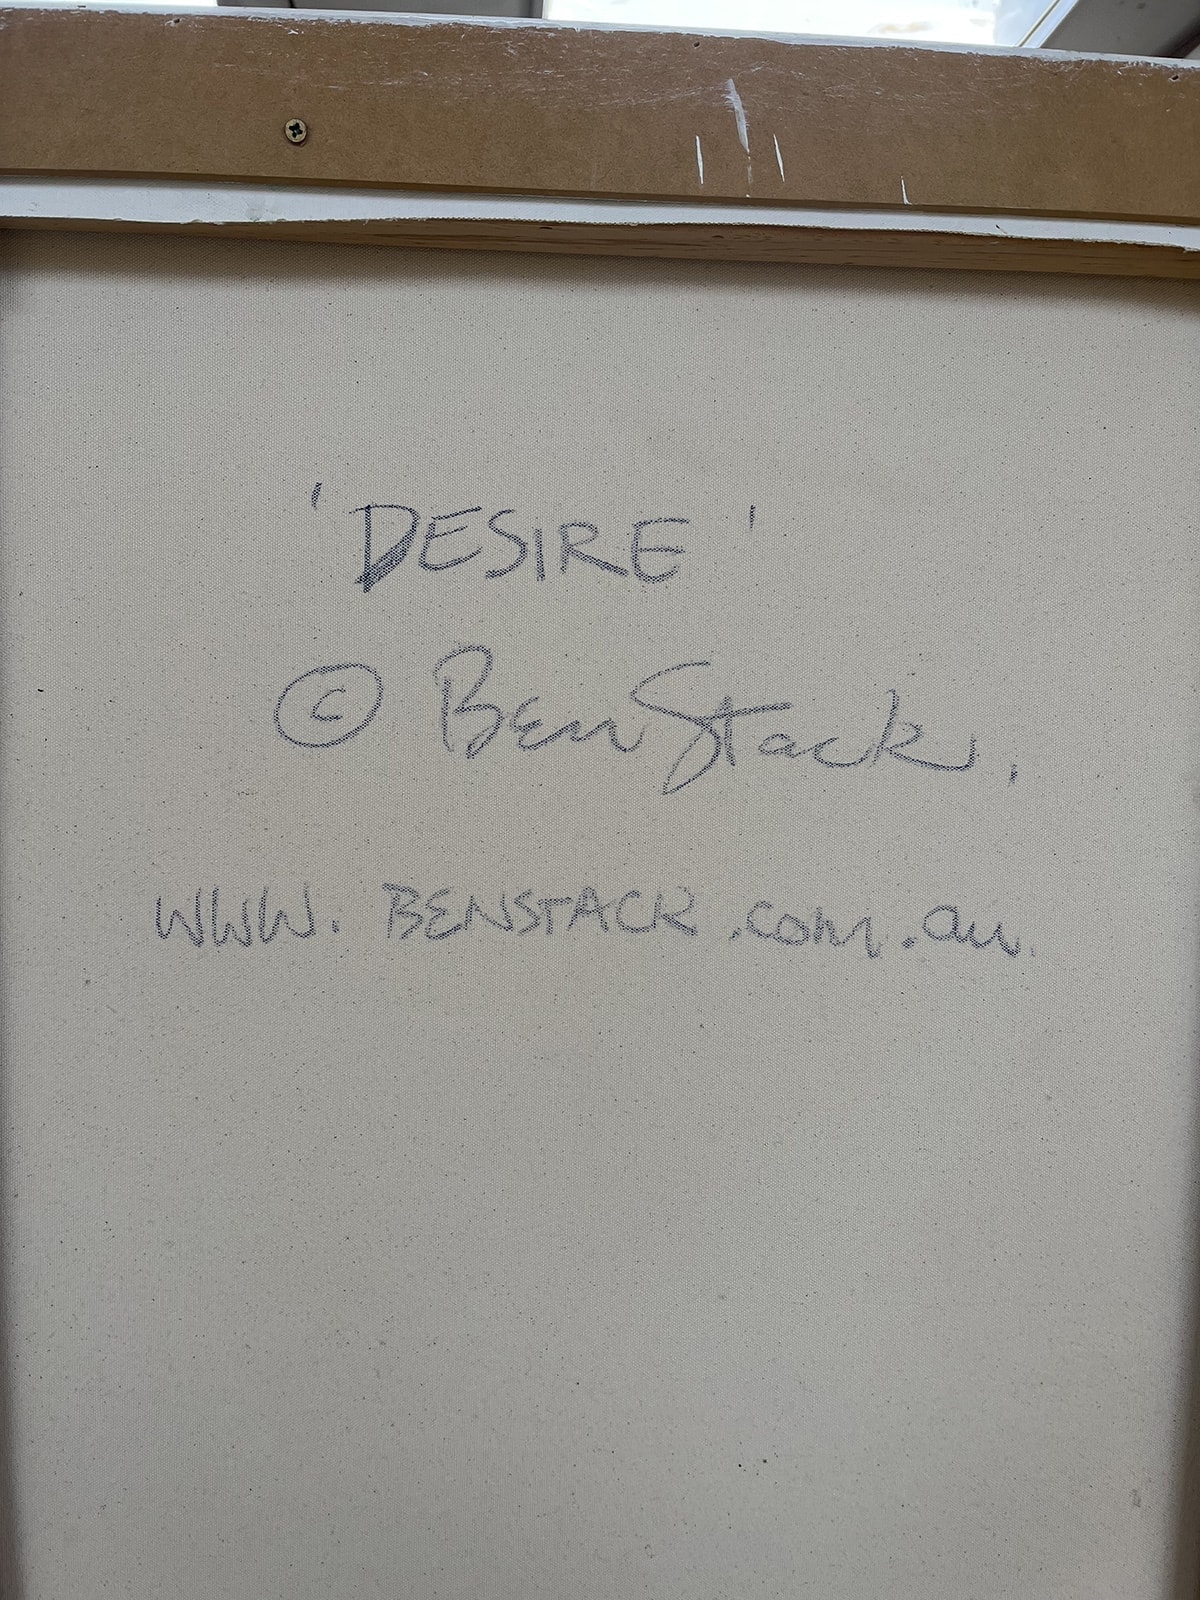 'DESIRE'
© Ben Stack.
WWW.BENSTACK.com.au.